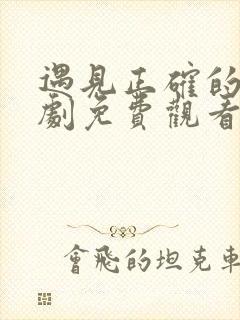 遇見正確的
劇免費觀看
會飛的坦克車